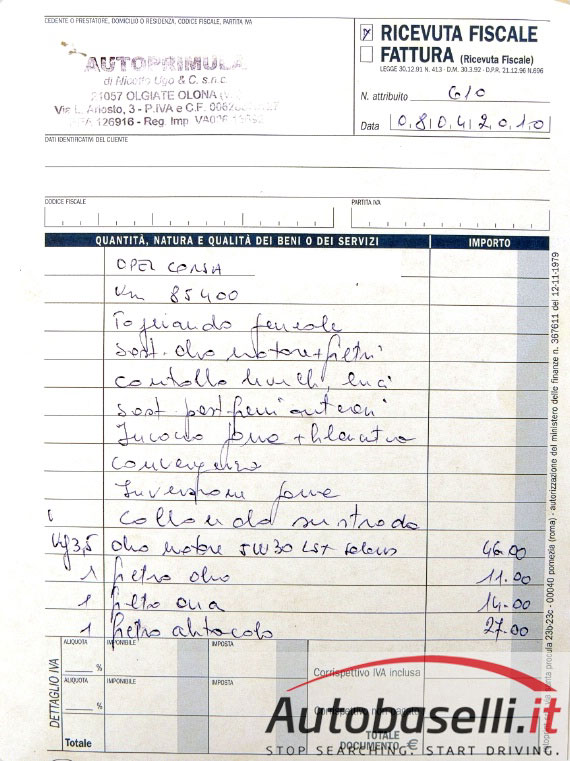 CEDENTE O PRESTATORE, DOMICILIO O RESIDENZA, CODICE FISCALE, PARTITA IVA
AUTOPRIMULA
di Nicotto Ugo & C. s.n.c.
21057 OLGIATE OLONA
Via L. Ariosto, 3 - P.IVA e C.F.
126916 - Reg. Imp.
RICEVUTA FISCALE
FATTURA (Ricevuta Fiscale)
LEGGE 30.12.91 N. 413 - D.M. 30.3.92 - D.P.R. 21.12.96 N.696
N. attribuito 610
Data 08042010
DATI IDENTIFICATIVI DEL CLIENTE
CODICE FISCALE
PARTITA IVA
QUANTITÀ, NATURA E QUALITÀ DEI BENI O DEI SERVIZI IMPORTO
OPEL CORSA
Km 85400
Tagliando generale
Sost. olio motore + filtri
controllo livelli, luci
Sost past. freni anteriori
convergenza
Inversione gomme
Collaudo su strada
Kg 3,5 olio motore 5W30 46.00
1 filtro olio 11.00
1 filtro aria 14.00
1 filtro abitacolo 27.00
DETTAGLIO IVA
ALIQUOTA IMPONIBILE IMPOSTA
% Corrispettivo IVA inclusa
ALIQUOTA IMPONIBILE IMPOSTA
% Corrispettivo non
Totale
TOTALE DOCUMENTO €
23b-23c - 00040 pomezia (roma) - autorizzazione del ministero delle finanze n. 367611 del 12-11-1979
Autobaselli.it
STOP SEARCHING. START DRIVING.